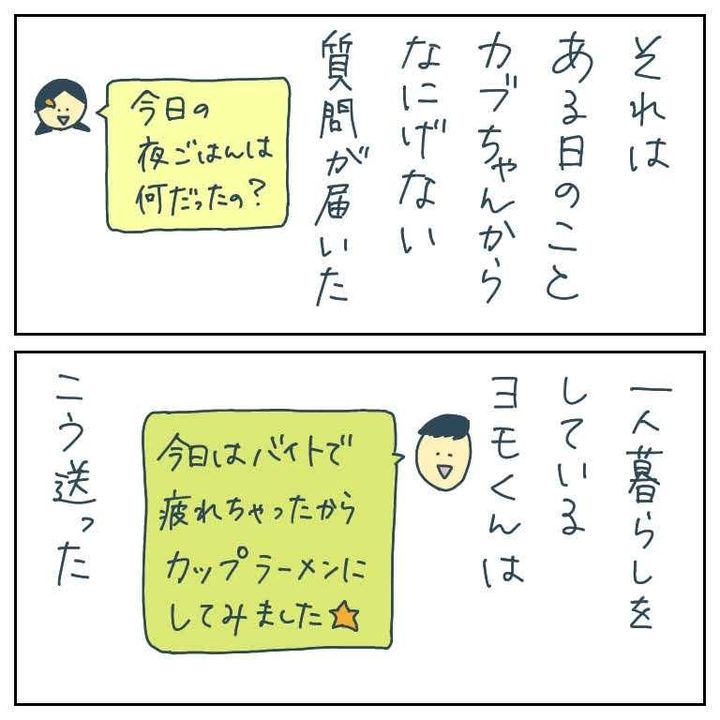 それは
ある日のこと
カブちゃんから
なにげない
質問が届いた
今日の
夜ごはんは
何だったの？
一人暮らしを
している
ヨモくんは
今日はバイトで
疲れちゃったから
カップラーメンに
してみました
こう送った